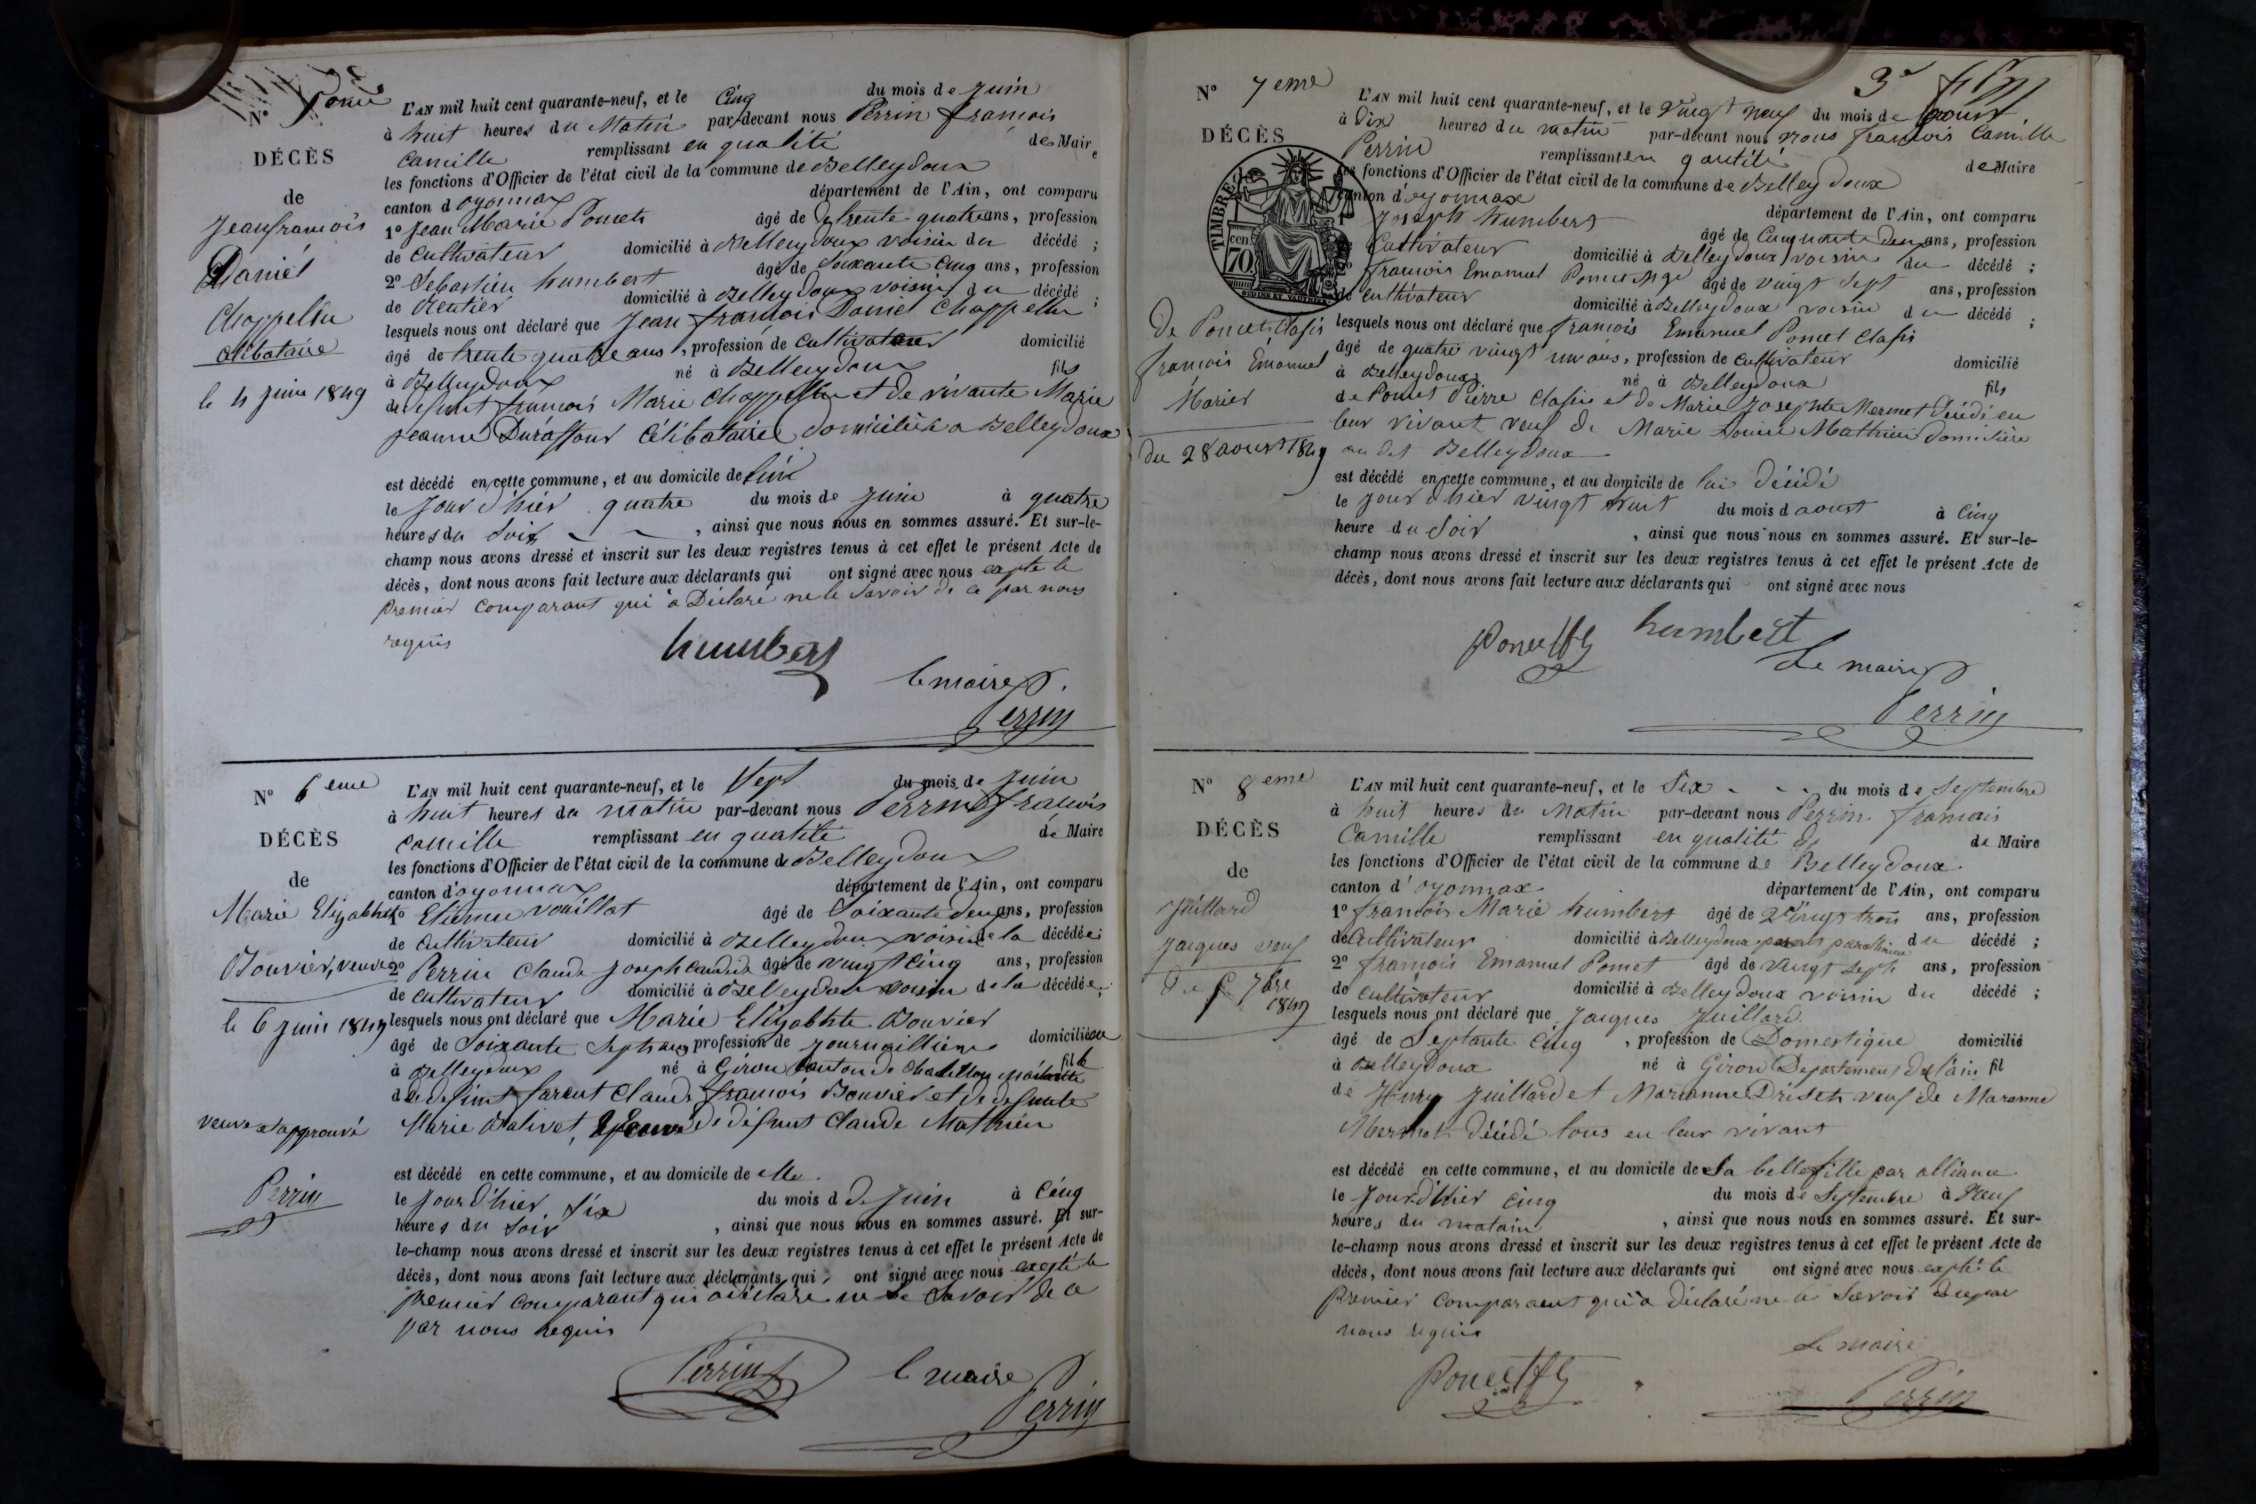 N° 5eme
DÉCÈS
de
Jeanfrancois
Daniel
Chappellu
célibataire
le 4 juin 1849
L'AN mil huit cent quarante-neuf, et le Cinq du mois de Juin
à huit heures du Matin par-devant nous Perrin francois
Camille remplissant en qualité de Maire
les fonctions d'Officier de l'état civil de la commune de Belleydoux
canton d'oyonnax département de l'Ain, ont comparu
1° Jean Marie Poncet âgé de trente quatre ans, profession
de Cultivateur domicilié à Belleydoux voisin du décédé ;
2° Sebastien humbert âgé de Soixante Cinq ans, profession
de Rentier domicilié à Belleydoux voisin du décédé ;
lesquels nous ont déclaré que Jean francois Daniel Chappellu
âgé de trente quatre ans, profession de Cultivateur domicilié
à Belleydoux né à Belleydoux fils
de defunt francois Marie Chappellu et de vivante Marie
Jeanne Duraffour Célibataire domiciliés a Belleydoux
est décédé en cette commune, et au domicile de lui
le Jour d'hier quatre du mois de Juin à quatre
heures du Soir, ainsi que nous nous en sommes assuré. Et sur-le-
champ nous avons dressé et inscrit sur les deux registres tenus à cet effet le présent Acte de
décès, dont nous avons fait lecture aux déclarants qui ont signé avec nous expte le
premier comparant qui a Déclaré ne le Savoir de ce par nous
requis
humbert
le maire
Perrin
N° 6eme
DÉCÈS
de
Marie Elizabhte
Bouvier, veuve
le 6 juin 1849
veuve approuvé
Perrin
L'AN mil huit cent quarante-neuf, et le Sept du mois de Juin
à huit heures du matin par-devant nous Perrin francois
camille remplissant en qualité de Maire
les fonctions d'Officier de l'état civil de la commune de Belleydoux
canton d'oyonnax département de l'Ain, ont comparu
1° Etienne Vouillat âgé de Soixante deux ans, profession
de Cultivateur domicilié à Belleydoux voisin de la décédée ;
2° Perrin Claude Joseph âgé de vingt Cinq ans, profession
de Cultivateur domicilié à Belleydoux voisin de la décédée ;
lesquels nous ont déclaré que Marie Elizabhte Bouvier
âgé de Soixante Sept ans profession de journaillière domicilié
à Belleydoux né à Giron Canton de Chatillon fille
de defunt Claude francois Bouvier et de defunte
Marie Balivet, de défunt Claude Mathieu
est décédé en cette commune, et au domicile de elle
le Jour d'hier Six du mois d de Juin à Cinq
heures du Soir, ainsi que nous nous en sommes assuré. Et sur-
le-champ nous avons dressé et inscrit sur les deux registres tenus à cet effet le présent Acte de
décès, dont nous avons fait lecture aux déclarants qui ont signé avec nous excepté le
premier comparant qui a déclaré ne le Savoir de ce
par nous requis
Perrin
le maire
Perrin
3e
N° 7eme
DÉCÈS
TIMBRE
cen.
70
De Poncet Clafis
francois Emanuel
Marier
du 28 aoust 1849
L'AN mil huit cent quarante-neuf, et le vingt neuf du mois de aoust
à Dix heures du matin par-devant nous nous francois Camille
Perrin remplissant en qautité de Maire
les fonctions d'Officier de l'état civil de la commune de Belleydoux
canton d'oyonnax département de l'Ain, ont comparu
Joseph humbert âgé de Cinquante deux ans, profession
Cultivateur domicilié à Belleydoux voisin du décédé ;
francois Emanuel Poncet âgé de vingt Sept ans, profession
de cultivateur domicilié à Belleydoux voisin du décédé ;
lesquels nous ont déclaré que francois Emanuel Poncet Clafis
âgé de quatre vingt un ans, profession de Cultivateur domicilié
à Belleydoux né à Belleydoux fils
de Poncet Pierre Clafis et de Marie Josephte Mermet Décédé en
leur vivant veuf de Marie Louise Mathieu domicilière
au dit Belleydoux
est décédé en cette commune, et au domicile de lui Décédé
le jour d'hier vingt huit du mois d aoust à Cinq
heure du Soir, ainsi que nous nous en sommes assuré. Et sur-le-
champ nous avons dressé et inscrit sur les deux registres tenus à cet effet le présent Acte de
décès, dont nous avons fait lecture aux déclarants qui ont signé avec nous
humbert
Le maire
Perrin
N° 8eme
DÉCÈS
de
Juillard
Jacques veuf
du 5 7bre
1849
L'AN mil huit cent quarante-neuf, et le Six du mois de Septembre
à huit heures du Matin par-devant nous Perrin francois
Camille remplissant en qualité de de Maire
les fonctions d'Officier de l'état civil de la commune de Belleydoux
canton d'oyonnax département de l'Ain, ont comparu
1° francois Marie humbert âgé de vingt trois ans, profession
de Cultivateur domicilié à Belleydoux du décédé ;
2° francois Emanuel Poncet âgé de vingt Sept ans, profession
de cultivateur domicilié à Belleydoux voisin du décédé ;
lesquels nous ont déclaré que Jacques Juillard
âgé de Septante Cinq, profession de Domestique domicilié
à Belleydoux né à Giron Departement de l'ain fil
de Henry Juillard et Marianne veuf de Maranne
Mermet Décédé tous en leur vivant
est décédé en cette commune, et au domicile de Sa belle fille par alliance
le Jour d'hier Cinq du mois de Septembre à Neuf
heures du matain, ainsi que nous nous en sommes assuré. Et sur-
le-champ nous avons dressé et inscrit sur les deux registres tenus à cet effet le présent Acte de
décès, dont nous avons fait lecture aux déclarants qui ont signé avec nous expté le
premier comparaent qui a déclaré ne le Savoir de ce par
nous requis
Le maire
Perrin